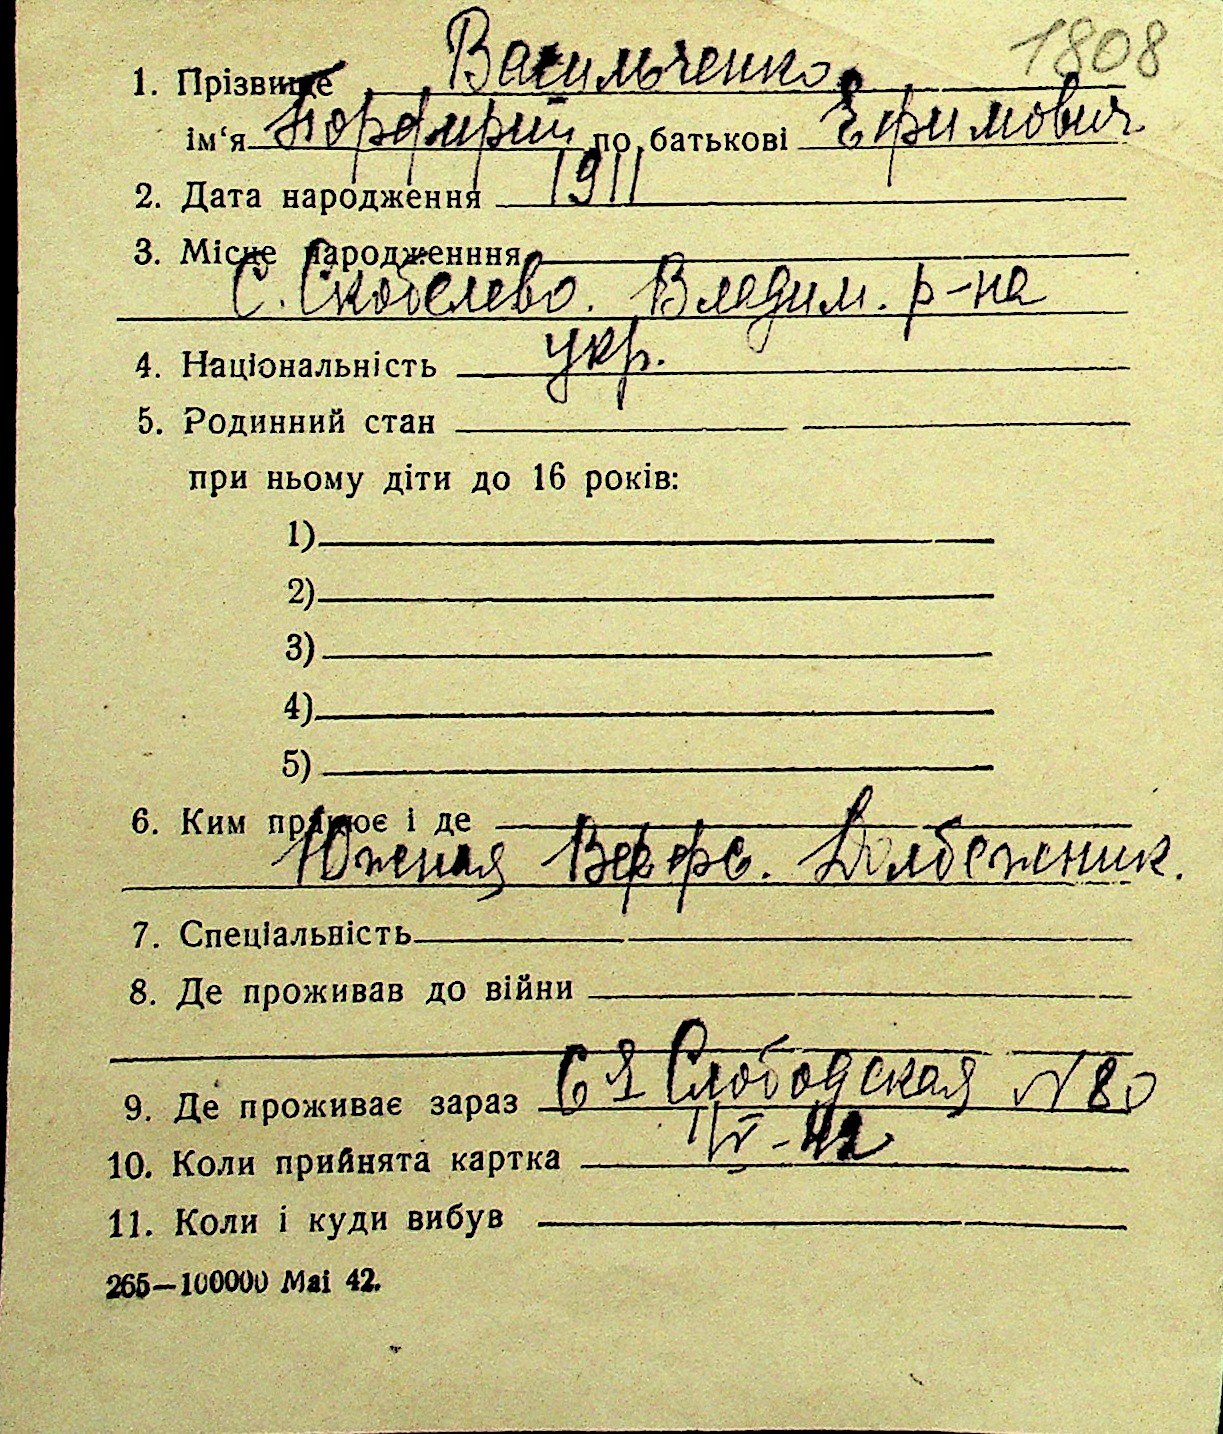 1808
1. Прізвище Васильченко
ім‘я Порфирий по батькові Ефимович
2. Дата народження 1911
3. Місце народженння
с. Скобелево. Владим. р-на
4. Національність укр.
5. Родинний стан
при ньому діти до 16 років:
1)
2)
3)
4)
5)
6. Ким працює і де
Южная Верфь. Долбежник.
7. Спеціальність
8. Де проживав до війни
9. Де проживає зараз 6 я Слободская N 80
10. Коли прийнята картка 1/V-42
11. Коли і куди вибув
265—100000 Mai 42.